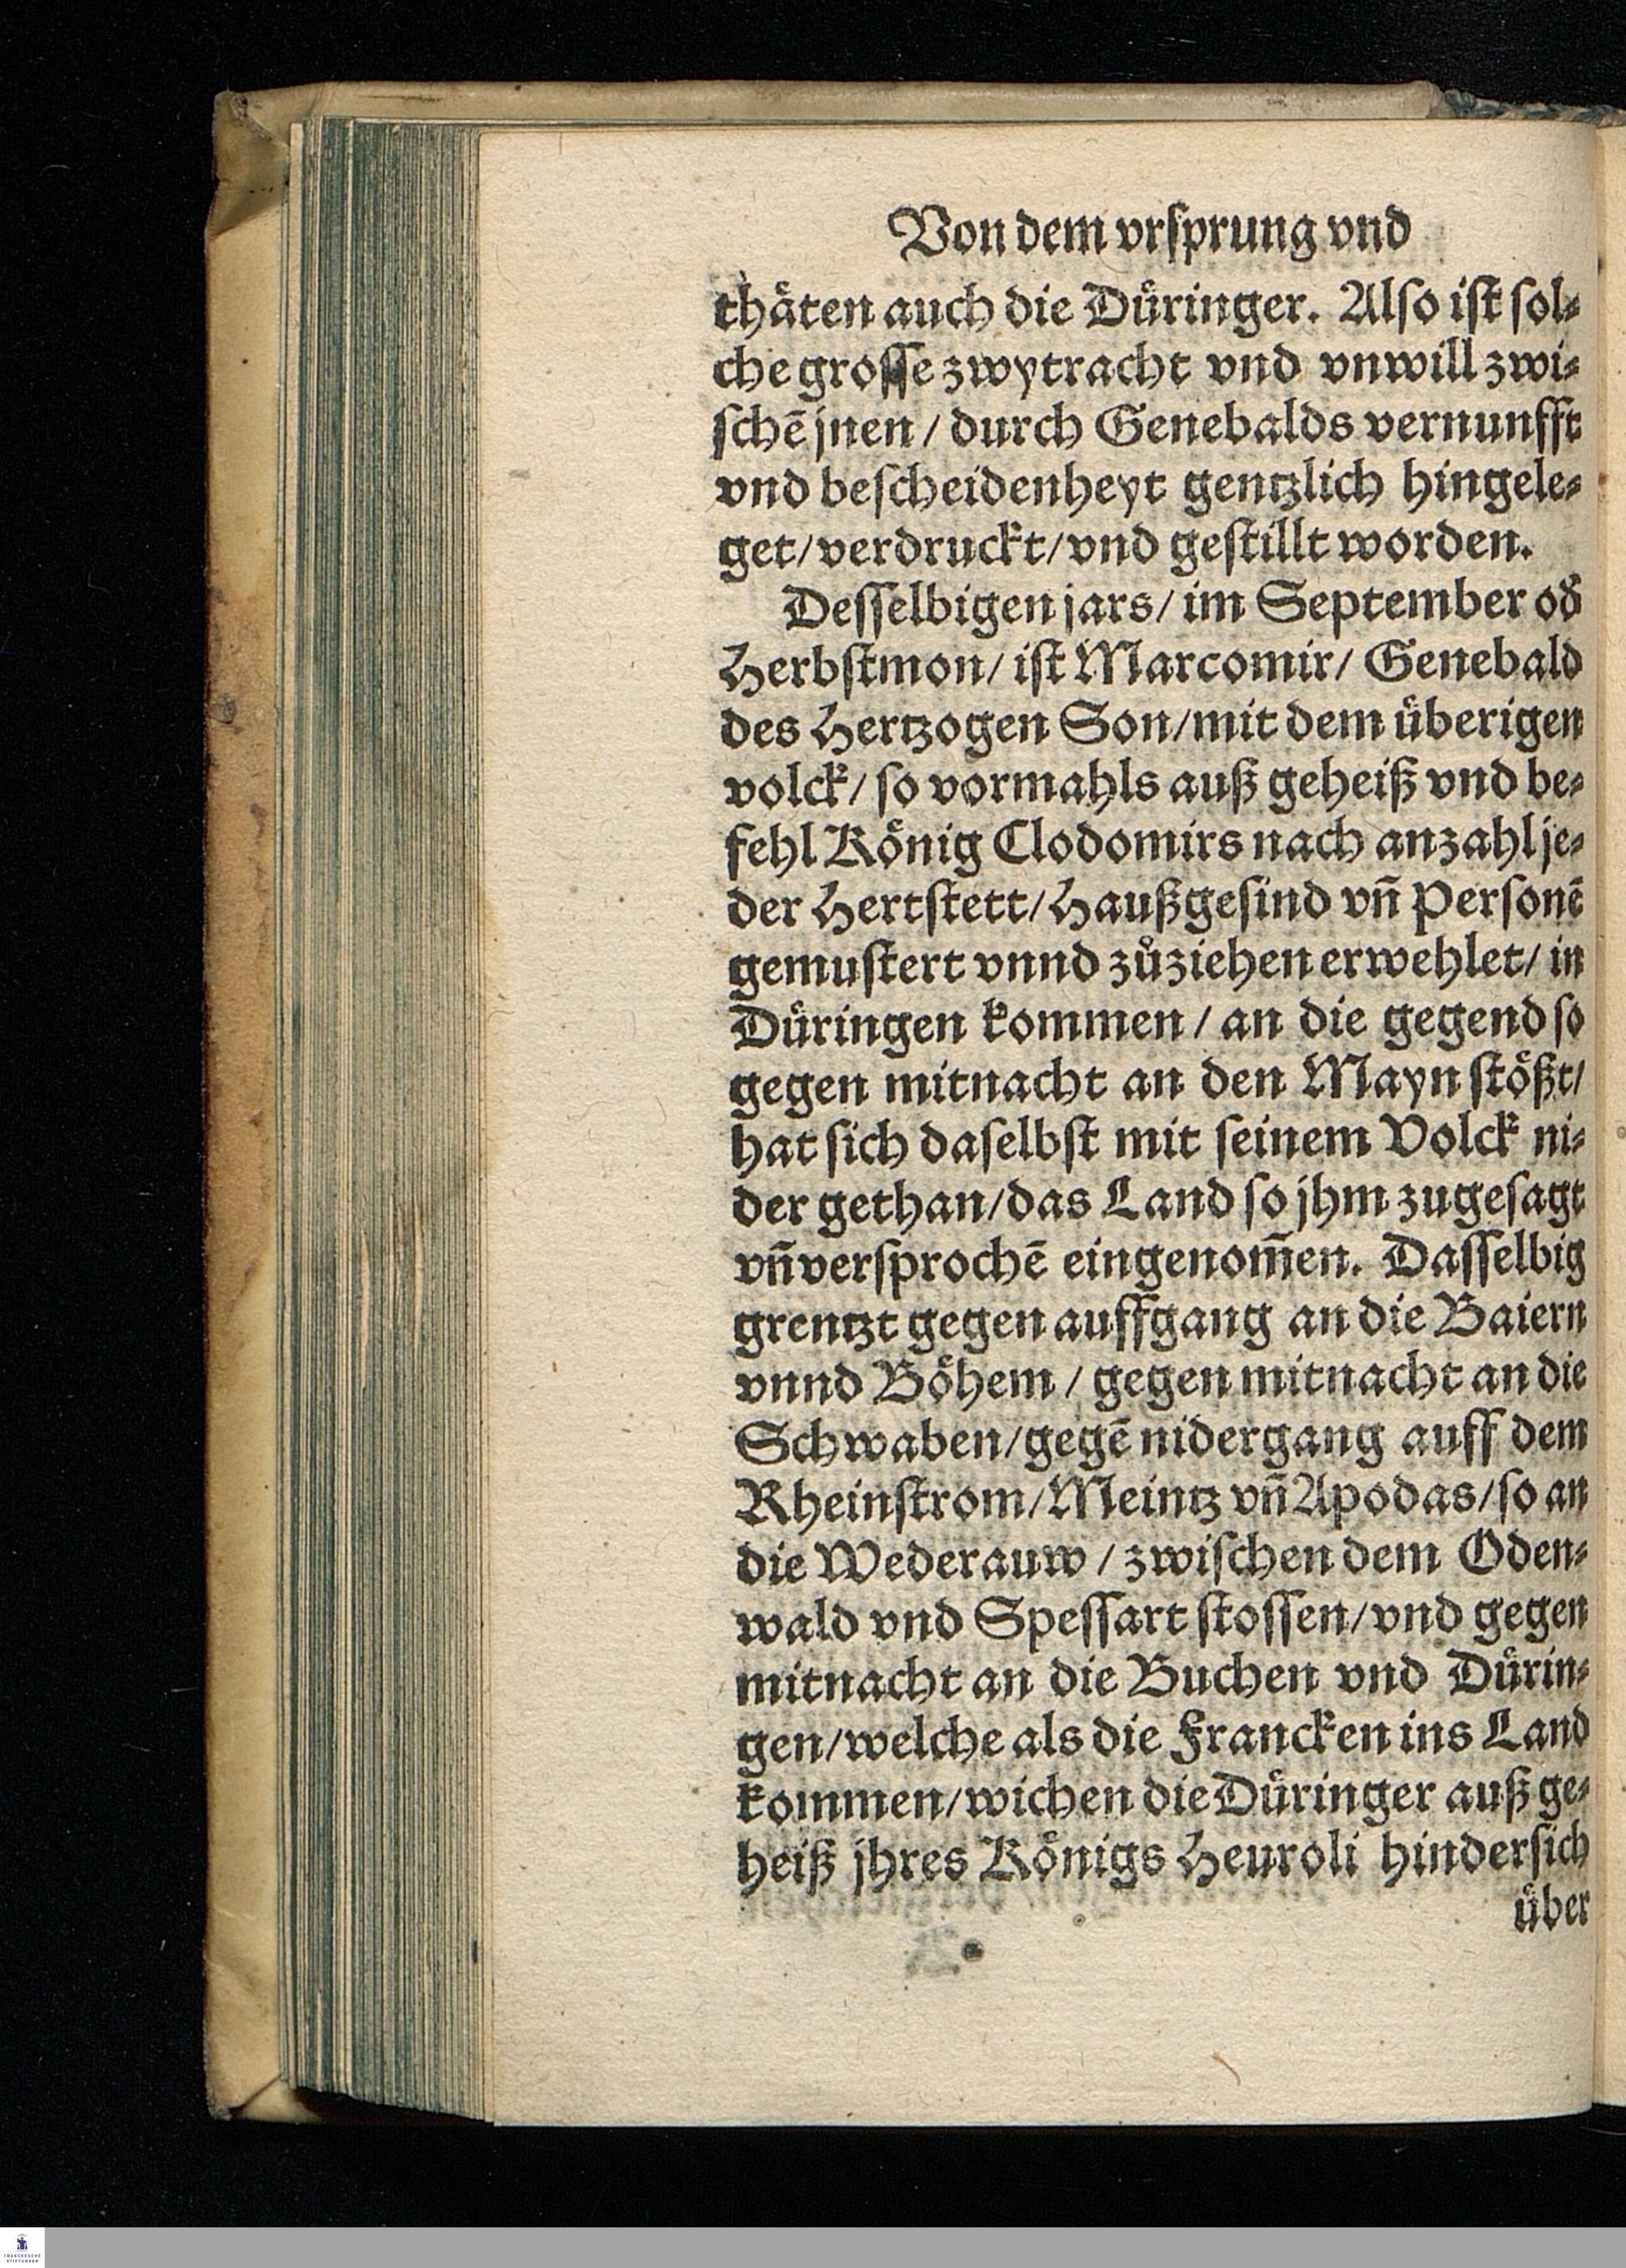 Von dem vrsprung vnd
thäten auch die Düringer. Also ist sol⸗
che grosse zwytracht vnd vnwill zwi⸗
schē jnen / durch Genebalds vernunfft
vnd bescheidenheyt gentzlich hingele⸗
get/verdruckt/vnd gestillt worden.
Desselbigen jars/ im September od̕
Herbstmon/ ist Marcomir/ Genebald
des Hertzogen Son/mit dem überigen
volck/ so vormahls auß geheiß vnd be⸗
fehl König Clodomirs nach anzahl je⸗
der Hertstett/Haußgesind vn̄ Personē
gemustert vnnd zůziehen erwehlet/ in
Düringen kommen / an die gegend so
gegen mitnacht an den Mayn stößt/
hat sich daselbst mit seinem Volck ni⸗
der gethan/das Land so jhm zugesagt
vn̄ versprochē eingenom̄en. Dasselbig
grentzt gegen auffgang an die Baiern
vnnd Böhem / gegen mitnacht an die
Schwaben/gegē nidergang auff dem
Rheinstrom/Meintz vn̄ Apodas/so an
die Wederauw / zwischen dem Oden⸗
wald vnd Spessart stossen/vnd gegen
mitnacht an die Buchen vnd Dürin⸗
gen/welche als die Francken ins Land
kommen/wichen die Düringer auß ge⸗
heiß jhres Königs Heuroli hindersich
über